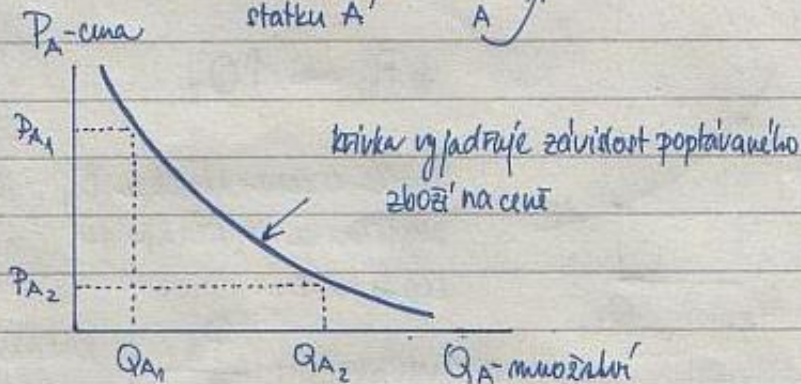 statku A
A
P_A-cena
P_A1
křivka vyjadřuje závislost poptávaného
zboží na ceně
P_A2
Q_A1 Q_A2 Q_A-množství